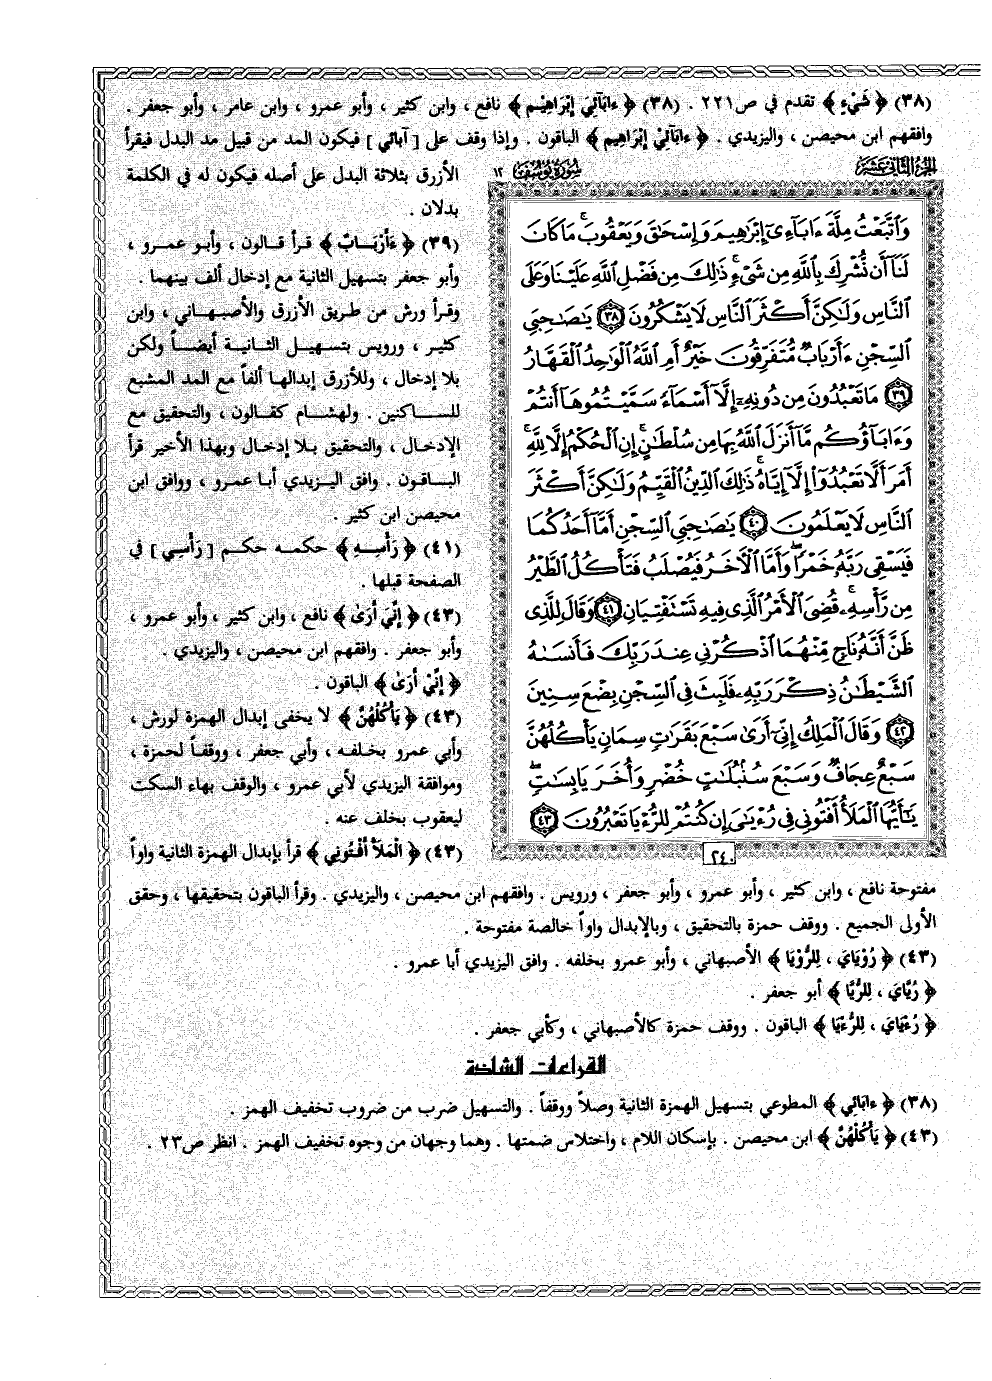 (٣٨) ﴿ شَيْءٍ ﴾ تقدم في ص٢٢١ . (٣٨) ﴿ ءابَآئِيَ إِبْرَاهِيم ﴾ نافع ، وابن كثير ، وأبو عمرو ، وابن عامر ، وأبو جعفر .
وافقهم ابن محيصن ، واليزيدي . ﴿ ءابَآئِيْ إِبْرَاهِيم ﴾ الباقون . وإذا وقف على [ آبائي ] فيكون المد من قبيل مد البدل فيقرأ
الجزء الثاني عشر
سورة يوسف ١٢
وَٱتَّبَعْتُ مِلَّةَ ءَابَآءِىٓ إِبْرَٰهِيمَ وَإِسْحَٰقَ وَيَعْقُوبَ ۚ مَا كَانَ
لَنَآ أَن نُّشْرِكَ بِٱللَّهِ مِن شَىْءٍ ۚ ذَٰلِكَ مِن فَضْلِ ٱللَّهِ عَلَيْنَا وَعَلَى
ٱلنَّاسِ وَلَٰكِنَّ أَكْثَرَ ٱلنَّاسِ لَا يَشْكُرُونَ ٣٨ يَٰصَٰحِبَىِ
ٱلسِّجْنِ ءَأَرْبَابٌ مُّتَفَرِّقُونَ خَيْرٌ أَمِ ٱللَّهُ ٱلْوَٰحِدُ ٱلْقَهَّارُ
٣٩ مَا تَعْبُدُونَ مِن دُونِهِۦٓ إِلَّآ أَسْمَآءً سَمَّيْتُمُوهَآ أَنتُمْ
وَءَابَآؤُكُم مَّآ أَنزَلَ ٱللَّهُ بِهَا مِن سُلْطَٰنٍ ۚ إِنِ ٱلْحُكْمُ إِلَّا لِلَّهِ ۚ
أَمَرَ أَلَّا تَعْبُدُوٓا۟ إِلَّآ إِيَّاهُ ۚ ذَٰلِكَ ٱلدِّينُ ٱلْقَيِّمُ وَلَٰكِنَّ أَكْثَرَ
ٱلنَّاسِ لَا يَعْلَمُونَ ٤٠ يَٰصَٰحِبَىِ ٱلسِّجْنِ أَمَّآ أَحَدُكُمَا
فَيَسْقِى رَبَّهُۥ خَمْرًا ۖ وَأَمَّا ٱلْءَاخَرُ فَيُصْلَبُ فَتَأْكُلُ ٱلطَّيْرُ
مِن رَّأْسِهِۦ ۚ قُضِىَ ٱلْأَمْرُ ٱلَّذِى فِيهِ تَسْتَفْتِيَانِ ٤١ وَقَالَ لِلَّذِى
ظَنَّ أَنَّهُۥ نَاجٍ مِّنْهُمَا ٱذْكُرْنِى عِندَ رَبِّكَ فَأَنسَىٰهُ
ٱلشَّيْطَٰنُ ذِكْرَ رَبِّهِۦ فَلَبِثَ فِى ٱلسِّجْنِ بِضْعَ سِنِينَ
٤٢ وَقَالَ ٱلْمَلِكُ إِنِّىٓ أَرَىٰ سَبْعَ بَقَرَٰتٍ سِمَانٍ يَأْكُلُهُنَّ
سَبْعٌ عِجَافٌ وَسَبْعَ سُنۢبُلَٰتٍ خُضْرٍ وَأُخَرَ يَابِسَٰتٍ ۖ
يَٰٓأَيُّهَا ٱلْمَلَأُ أَفْتُونِى فِى رُءْيَٰىَ إِن كُنتُمْ لِلرُّءْيَا تَعْبُرُونَ ٤٣
٢٤٠
الأزرق بثلاثة البدل على أصله فيكون له في الكلمة
بدلان .
(٣٩) ﴿ ءَأَرْبَابٌ ﴾ قرأ قالون ، وأبو عمرو ،
وأبو جعفر بتسهيل الثانية مع إدخال ألف بينهما .
وقرأ ورش من طريق الأزرق والأصبهاني ، وابن
كثير ، ورويس بتسهيل الثانية أيضاً ولكن
بلا إدخال ، وللأزرق إبدالها ألفاً مع المد المشبع
للساكنين . ولهشام كقالون ، والتحقيق مع
الإدخال ، والتحقيق بلا إدخال وبهذا الأخير قرأ
الباقون . وافق اليزيدي أبا عمرو ، ووافق ابن
محيصن ابن كثير .
(٤١) ﴿ رَأْسِهِ ﴾ حكمه حكم [ رَأْسِي ] في
الصفحة قبلها .
(٤٣) ﴿ إِنِّيَ أَرَىٰ ﴾ نافع ، وابن كثير ، وأبو عمرو ،
وأبو جعفر . وافقهم ابن محيصن ، واليزيدي .
﴿ إِنِّيْ أَرَىٰ ﴾ الباقون .
(٤٣) ﴿ يَأْكُلُهُنَّ ﴾ لا يخفى إبدال الهمزة لورش ،
وأبي عمرو بخلفه ، وأبي جعفر ، ووقفاً لحمزة ،
وموافقة اليزيدي لأبي عمرو ، والوقف بهاء السكت
ليعقوب بخلف عنه .
(٤٣) ﴿ الْمَلَأُ أَفْتُونِي ﴾ قرأ بإبدال الهمزة الثانية واواً
مفتوحة نافع ، وابن كثير ، وأبو عمرو ، وأبو جعفر ، ورويس . وافقهم ابن محيصن ، واليزيدي . وقرأ الباقون بتحقيقها ، وحقق
الأولى الجميع . ووقف حمزة بالتحقيق ، وبالإبدال واواً خالصة مفتوحة .
(٤٣) ﴿ رُوْيَايَ ، لِلرُّوْيَا ﴾ الأصبهاني ، وأبو عمرو بخلفه . وافق اليزيدي أبا عمرو .
﴿ رُيَّايَ ، لِلرُّيَّا ﴾ أبو جعفر .
﴿ رُءْيَايَ ، لِلرُّءْيَا ﴾ الباقون . ووقف حمزة كالأصبهاني ، وكأبي جعفر .
القراءات الشاذة
(٣٨) ﴿ ءابَائِي ﴾ المطوعي بتسهيل الهمزة الثانية وصلاً ووقفاً . والتسهيل ضرب من ضروب تخفيف الهمز .
(٤٣) ﴿ يَأْكُلْهُنَّ ﴾ ابن محيصن . بإسكان اللام ، واختلاس ضمتها . وهما وجهان من وجوه تخفيف الهمز . انظر ص٢٣ .